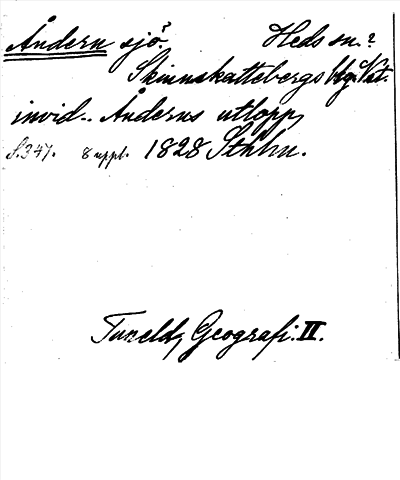 Åndern sjö? Heds sn.?
Skinnskattebergs bg. Vst.
invid .. Ånderns utlopp,
S. 347. 8 uppl. 1828 Sthlm.
Tuneld, Geografi. II.